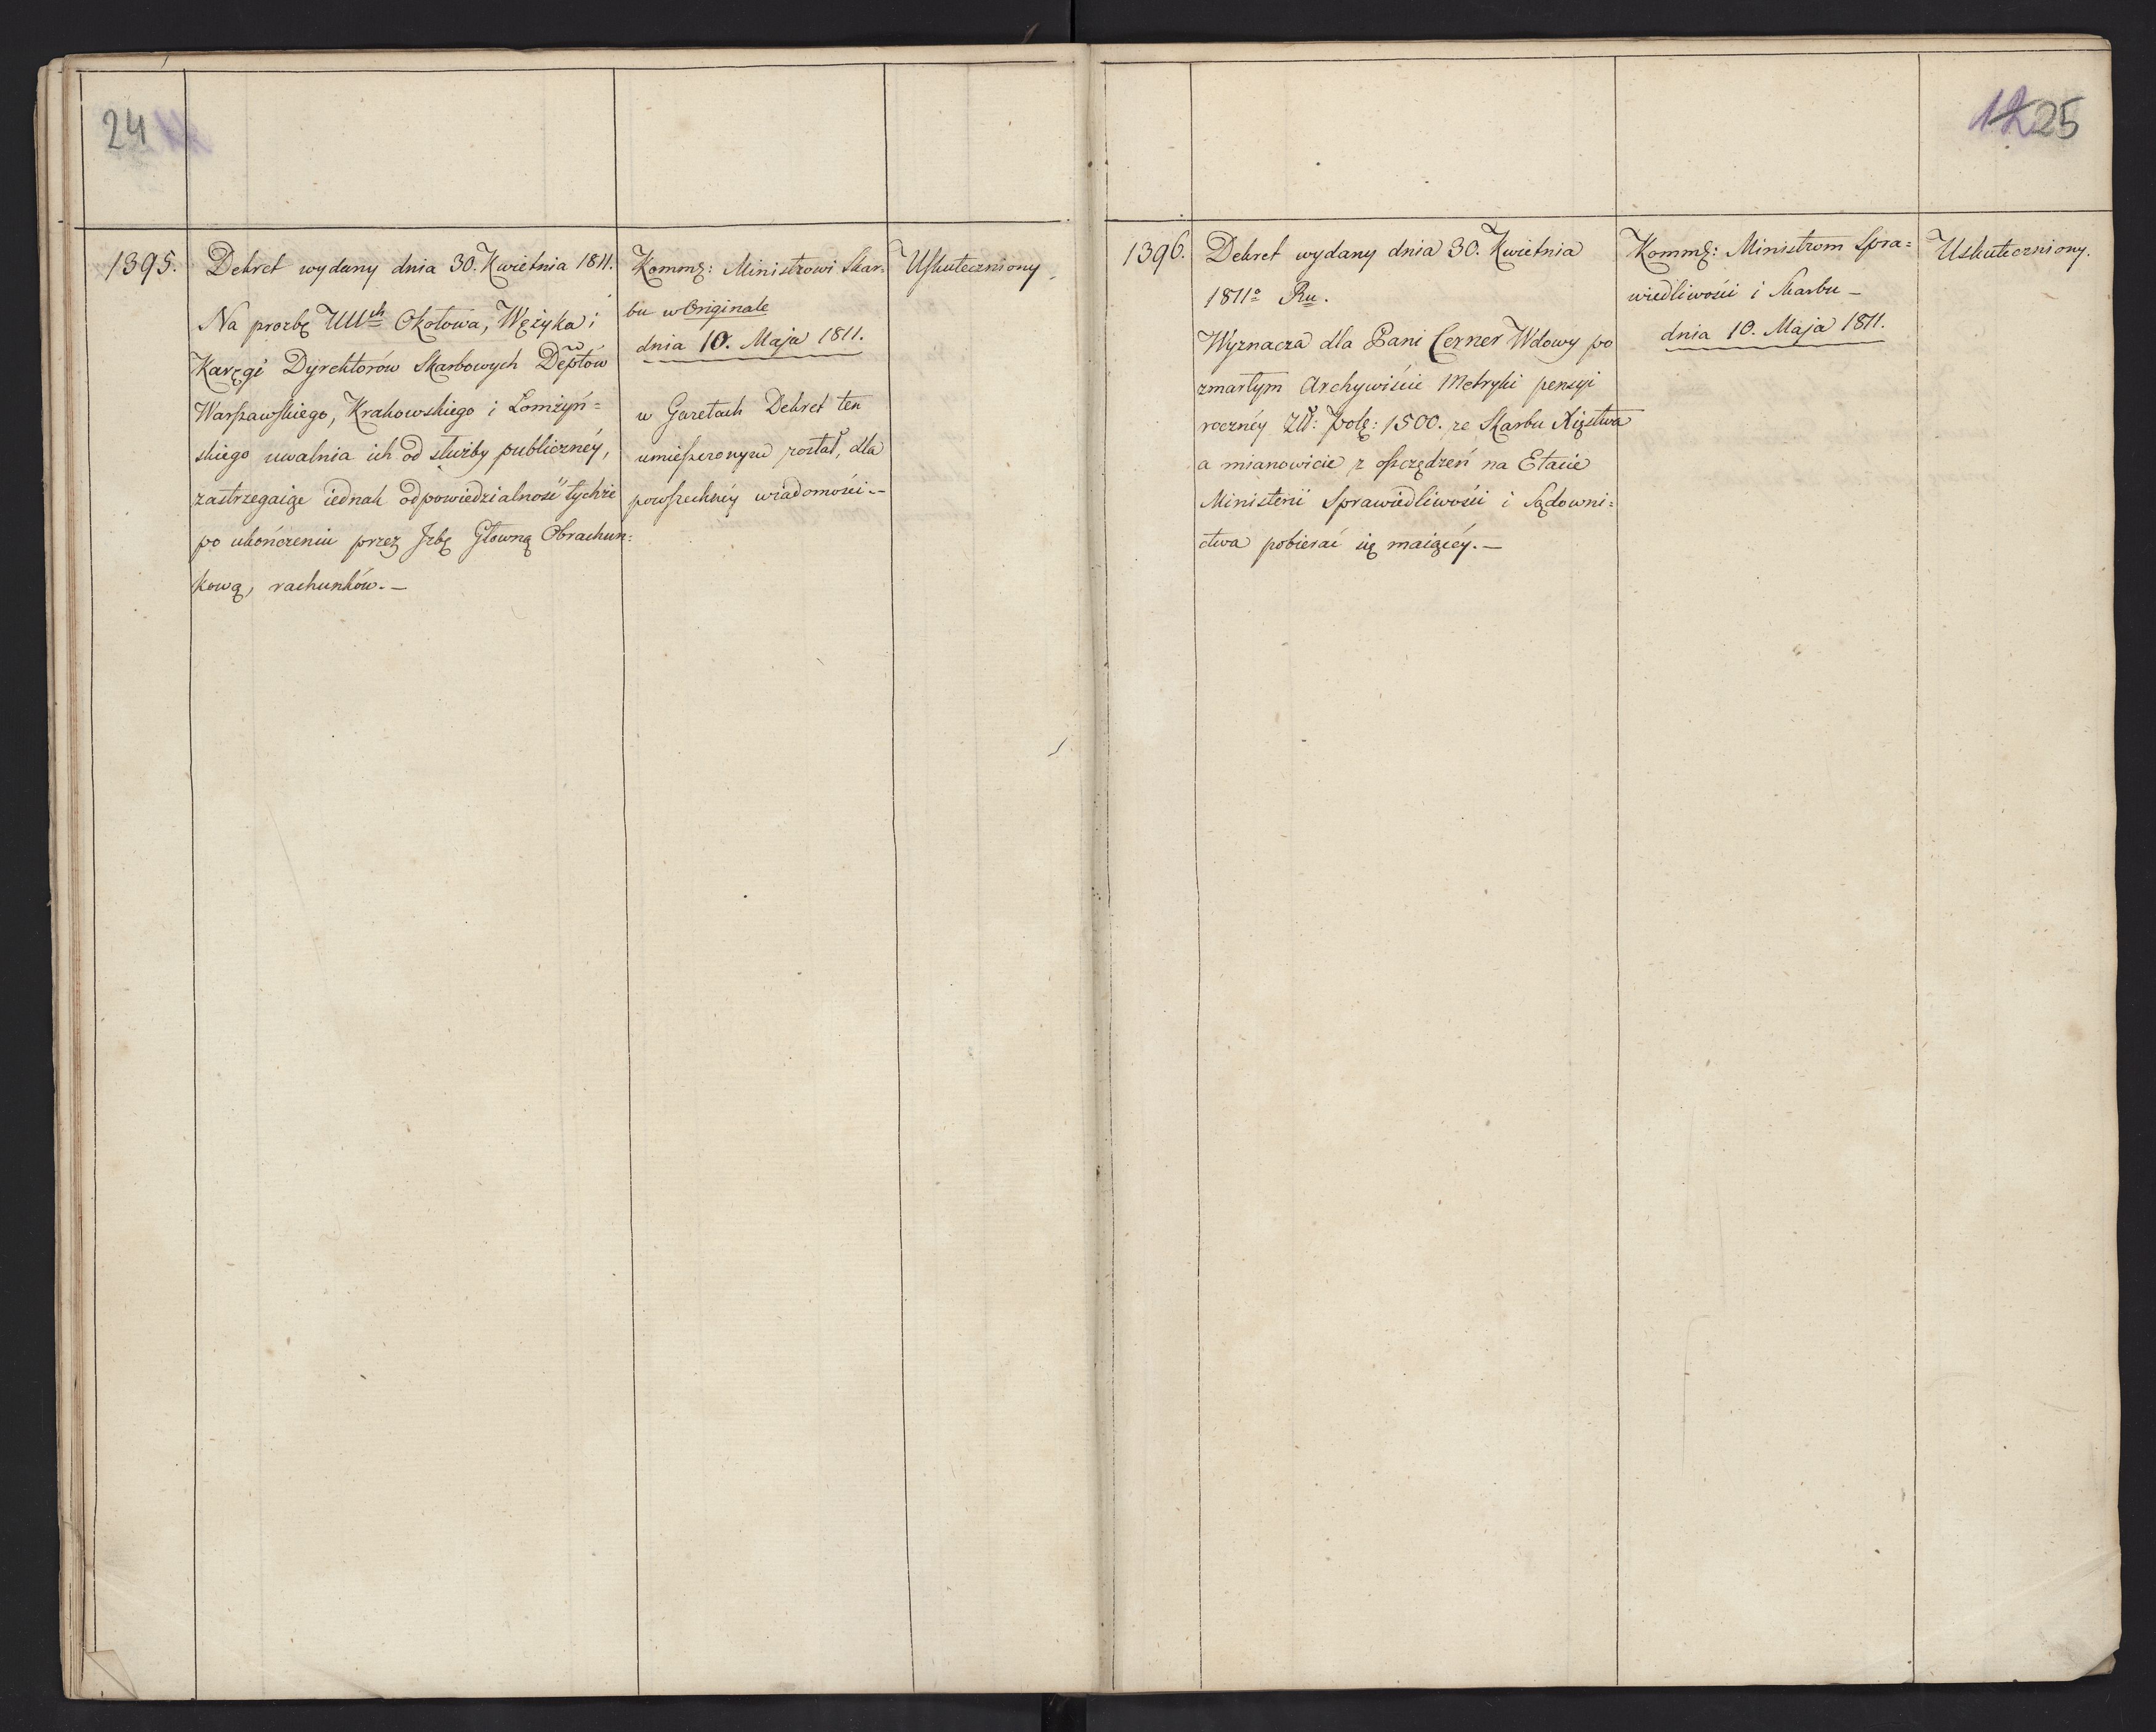 24
1395.
Dekret wydany dnia 30. Kwietnia 1811.
Na prozbę UUch Okołowa, Wężyka i
Karęgi Dyrektorów Skarbowych Deptów
Warszawskiego, Krakowskiego i Łomżyń=
skiego uwalnia ich od służby publiczney,
zastrzegaiąc iednak odpowiedzialność tychże
po ukończeniu przez Jzbę Głowną Obrachun=
kową, rachunków. —
Kommg: Ministrowi Skar=
bu w Originale
dnia 10. Maja 1811.
w Gazetach Dekret ten
umieszczonym został, dla
powszechnéy wiadomości. —
Uskuteczniony
12 25
1396.
Dekret wydany dnia 30. Kwietnia
1811o Ru.
Wyznacza dla Pani Cerner Wdowy po
zmarłym Archywiście Metryki pensyi
roczney Zł: polg: 1500. ze Skarbu Xięstwa
a mianowicie z oszczędzeń na Etacie
Ministerii Sprawiedliwości i Sądowni=
ctwa pobierać się maiącéy. —
Kommg: Ministrom Spra=
wiedliwości i Skarbu —
dnia 10. Maja 1811.
Uskuteczniony.